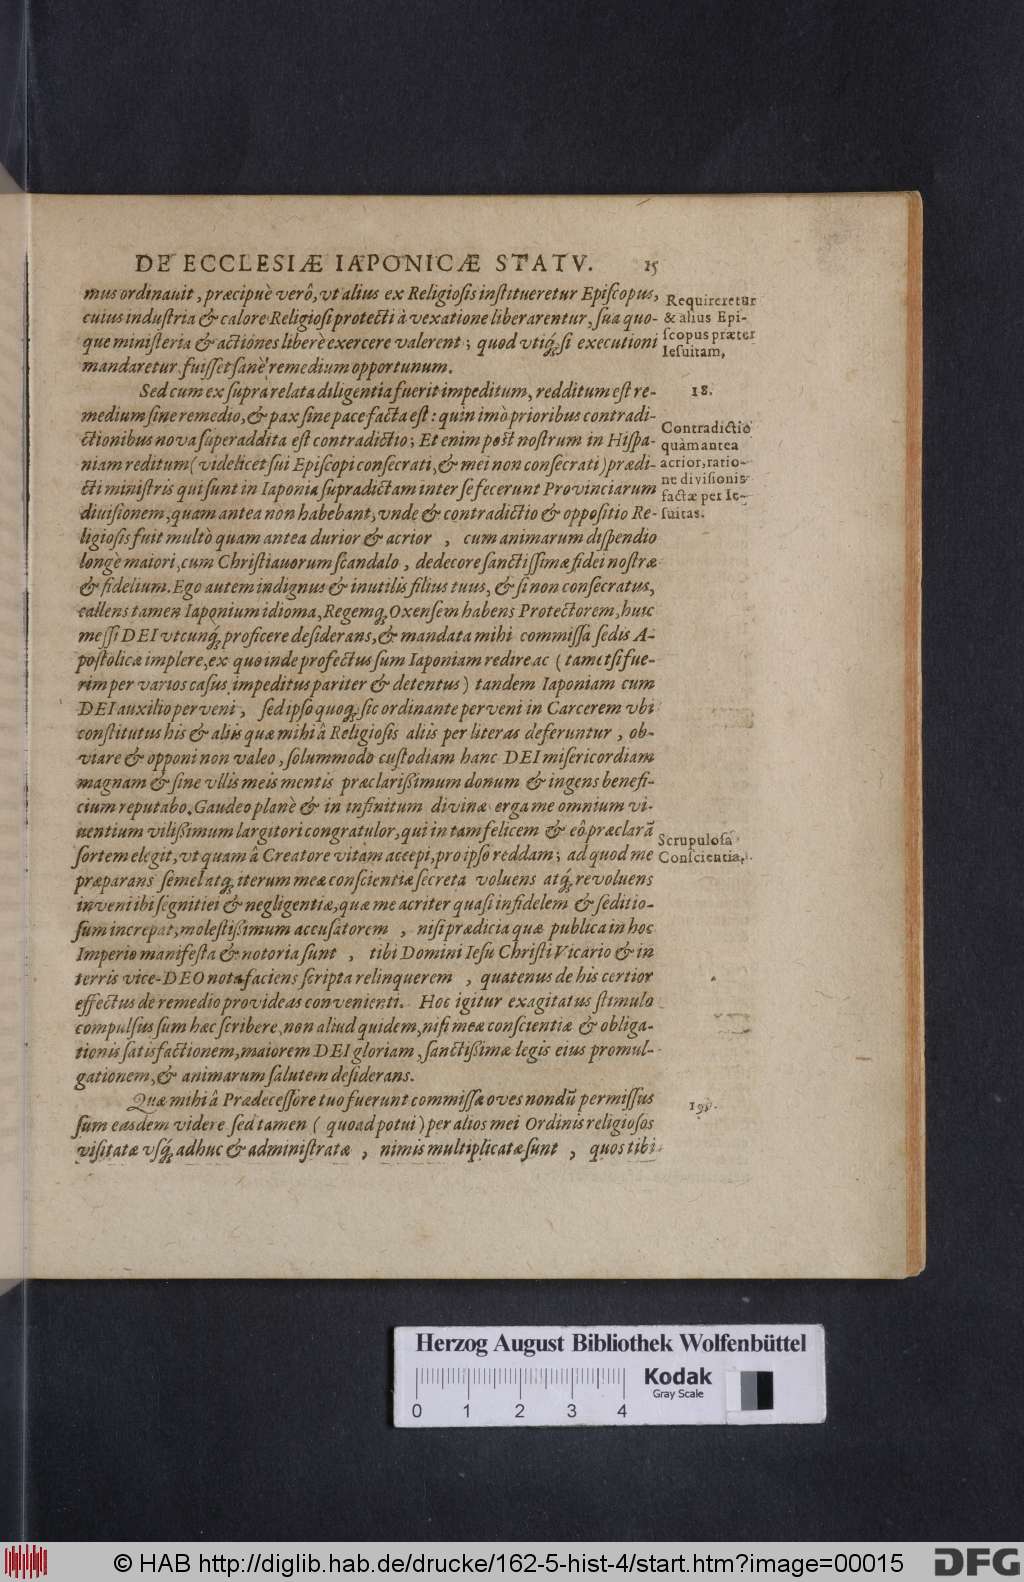 DE ECCLESIÆ IAPONICÆ STATV. 15
mus ordinauit, præcipuè verô, vt alius ex Religiosis institueretur Episcopus,
cuius industria & calore Religiosi protecti à vexatione liberarentur, sua quo-
que ministeria & actiónes liberè exercere valerent; quod vtiq́ue si executioni
mandaretur fuisset sanè remedium opportunum.
Requireretur
& alius Epi-
scopus præter
Iesuitam,
Sed cum ex supra relata diligentia fuerit impeditum, redditum est re-
medium sine remedio, & pax sine pace facta est: quin imò prioribus contradi-
ctionibus noua superaddita est contradictio; Et enim post nostrum in Hispa-
niam reditum (videlicet sui Episcopi consecrati, & mei non consecrati) prædi-
cti ministris qui sunt in Iaponia supradictam inter se fecerunt Prouinciarum
diuisionem, quam antea non habebant, vnde & contradictio & oppositio Re-
ligiosis fuit multò quam antea durior & acrior, cum animarum dispendio
longè maiori, cum Christiauorum scandalo, dedecore sanctissimæ fidei nostræ
& fidelium. Ego autem indignus & inutilis filius tuus, & si non consecratus,
callens tamen Iaponium idioma, Regemq́; Oxensem habens Protectorem, huic
messi DEI vtcunq́; proficere desiderans, & mandata mihi commissa sedis A-
postolicæ implere, ex quo inde profectus sum Iaponiam redire ac (tametsi fue-
rim per varios casus impeditus pariter & detentus) tandem Iaponiam cum
DEI auxilio perveni, sed ipso quoq; sic ordinante perveni in Carcerem vbi
constitutus his & aliis quæ mihi â Religiosis aliis per literas deferuntur, ob-
viare & opponi non valeo, solummodo custodiam hanc DEI misericordiam
magnam & sine vllis meis mentis præclarißimum donum & ingens benefi-
cium reputabo. Gaudeo planè & in infinitum divinæ erga me omnium vi-
uentium vilißimum largitori congratulor, qui in tam felicem & eô præclarã
sortem elegit, vt quam â Creatore vitam accepi, pro ipso reddam; ad quod me
præparans semel atq; iterum meæ conscientiæ secreta voluens atq́; revoluens
inveni ibi segnitiei & negligentiæ, quæ me acriter quasi infidelem & seditio-
sum increpat, molestißimum accusatorem, nisi prædicia quæ publica in hoc
Imperio manifesta & notoria sunt, tibi Domini Iesu Christi Vicario & in
terris vice-DEO nota faciens scripta relinquerem, quatenus de his certior
effectus de remedio provideas convenienti. Hoc igitur exagitatus stimulo
compulsus sum hæc scribere, non aliud quidem, nisi meæ conscientiæ & obliga-
tionis satisfactionem, maiorem DEI gloriam, sanctißimæ legis eius promul-
gationem, & animarum salutem desiderans.
18.
Contradictio
quàm antea
acrior, ratio-
ne divisionis
factæ per Ie-
suitas.
Scrupulosa
Conscientia.
Quæ mihi â Prædecessore tuo fuerunt commissæ oves nondũ permissus
sum easdem videre sed tamen (quoad potui) per alios mei Ordinis religiosos
visitatæ vsq́; adhuc & administratæ, nimis multiplicatæ sunt, quos tibi
19.
Herzog August Bibliothek Wolfenbüttel
Kodak
Gray Scale
0 1 2 3 4
© HAB http://diglib.hab.de/drucke/162-5-hist-4/start.htm?image=00015
DFG